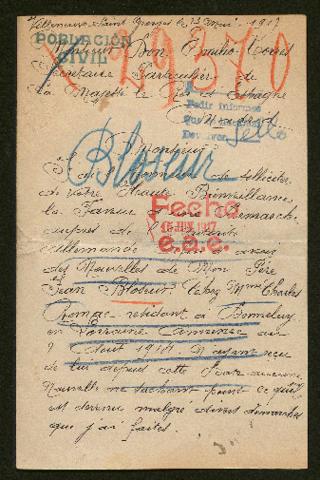 Villeneuve-Saint Georges le 13 1917
POBLACIÓN CIVIL
Monsieur Don Emilio Torres
79370
Secrétaire Particulier de
Sa Majesté le Roi d'Espagne
Madrid
Pedir informes
Devolver
Sello
Monsieur
Bloseur
J'ai l'honneur de solliciter
de votre Haute Bienveillance
la Faveur d'une démarche
auprès de
Fecho
15 JUN. 1917
e.a.e.
Allemande avoir
des Nouvelles de Mon Père
Jean Bloseur chez Mme Charles
résidant à
en Lorraine Annexée au
Août 1914 N'ayant reçu
de lui depuis cette date aucune
Nouvelle ne sachant point ce qu'il
est devenu malgré diverses démarches
que j'ai faites.